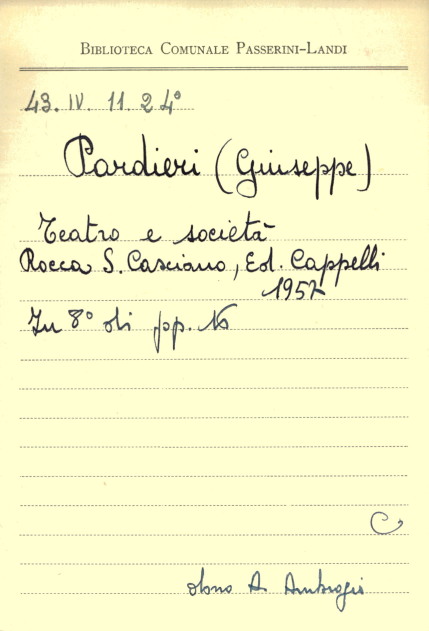 BIBLIOTECA COMUNALE PASSERINI-LANDI
43. IV. 11. 24°
Pardieri (Giuseppe)
Teatro e società
Rocca S. Casciano, Ed. Cappelli
1957
In 8° di pp. 16
C
dono A. Ambrogio